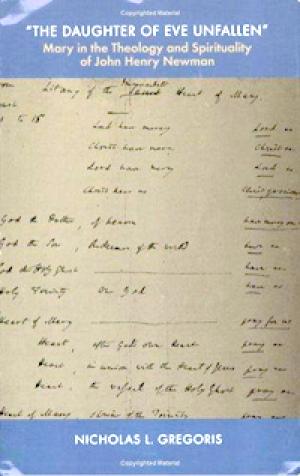 Copyrighted Material
"THE DAUGHTER OF EVE UNFALLEN"
Mary in the Theology and Spirituality
of John Henry Newman
Litany of the Immaculate Heart of Mary.
Lord have mercy Lord
Christ have mercy Christ
Lord have mercy Lord
Christ hear us Christ
God the Father, of heaven have mercy on
God the Son, Redeemer of the world have
God the Holy Ghost have
Holy Trinity One God have
Heart of Mary pray for us
Heart, after God's own Heart pray
Heart, in union with the Heart of Jesus pray
Heart, the vessel of the Holy Ghost pray
Heart of Mary shrine of the Trinity pray
NICHOLAS L. GREGORIS
Copyrighted Material